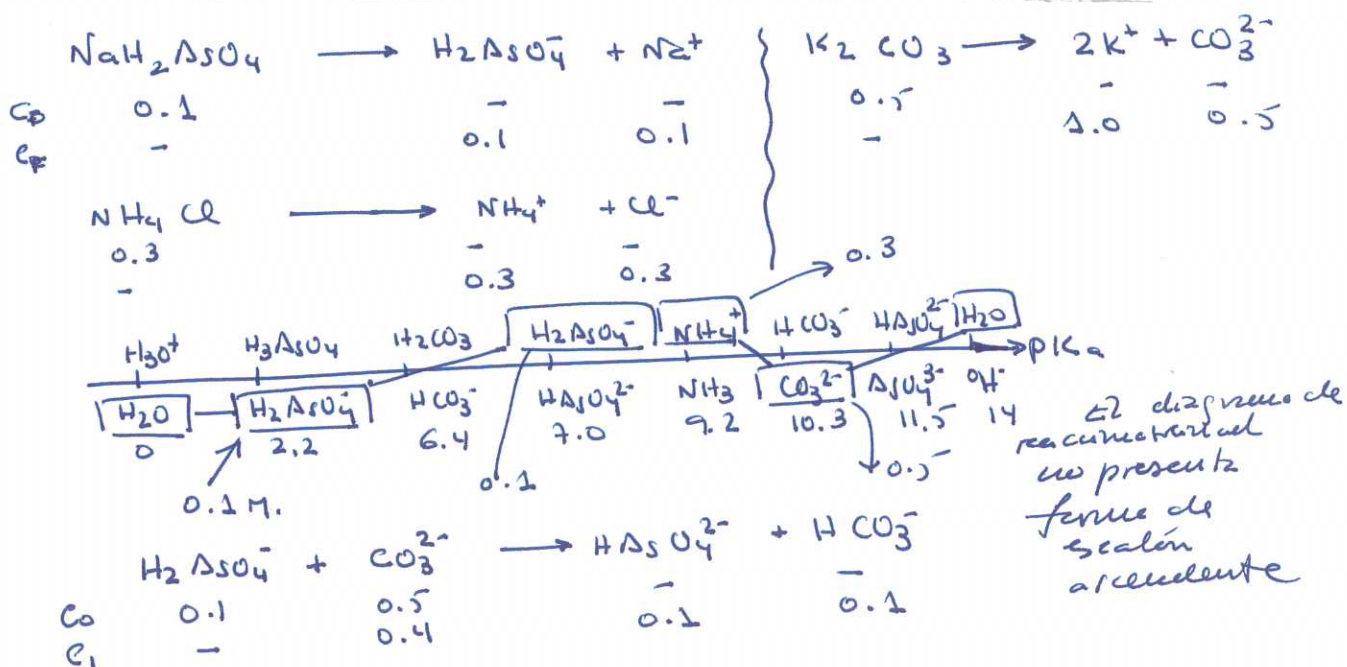 NaH₂AsO₄ ⟶ H₂AsO₄⁻ + Na⁺
C₀ 0.1 - -
- 0.1 0.1
K₂CO₃ ⟶ 2K⁺ + CO₃²⁻
0.5 - -
- 1.0 0.5
NH₄Cl ⟶ NH₄⁺ + Cl⁻
0.3 - -
- 0.3 0.3
0.3
H₃O⁺ H₃AsO₄ H₂CO₃ H₂AsO₄⁻ NH₄⁺ HCO₃⁻ HAsO₄²⁻ H₂O
pKa
H₂O H₂AsO₄⁻ HCO₃⁻ HAsO₄²⁻ NH₃ CO₃²⁻ AsO₄³⁻ OH⁻
0 2.2 6.4 7.0 9.2 10.3 11.5 14
0.1 M. 0.1 0.5
El diagrama de
no presenta
forma de
escalón
ascendente
H₂AsO₄⁻ + CO₃²⁻ ⟶ HAsO₄²⁻ + HCO₃⁻
C₀ 0.1 0.5 - -
C₁ - 0.4 0.1 0.1